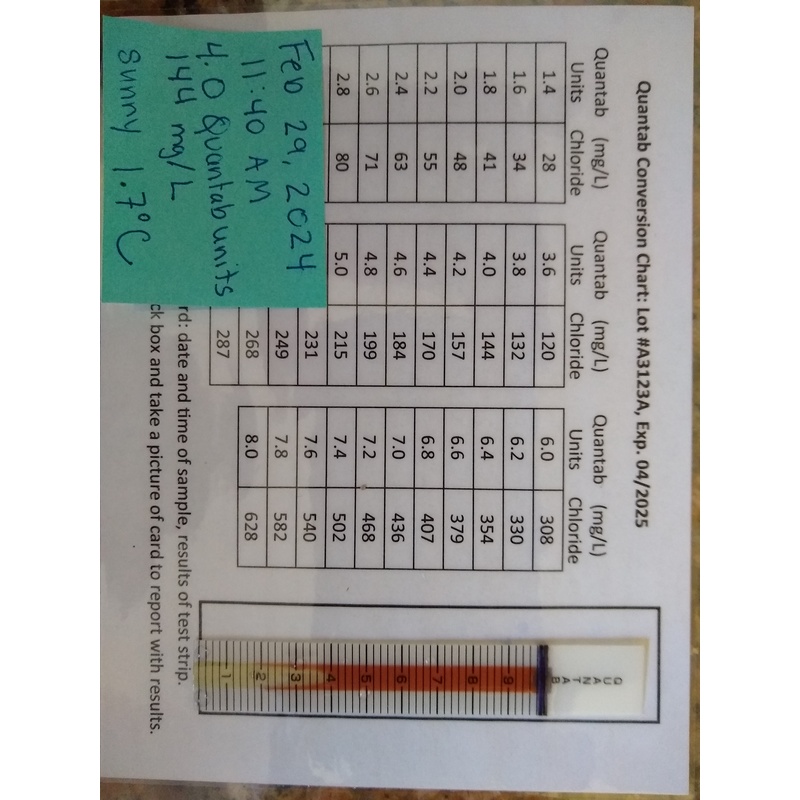 Quantab Conversion Chart: Lot #A3123A, Exp. 04/2025
Quantab (mg/L) Quantab (mg/L) Quantab (mg/L)
Units Chloride Units Chloride Units Chloride
1.4 28 3.6 120 6.0 308
1.6 34 3.8 132 6.2 330
1.8 41 4.0 144 6.4 354
2.0 48 4.2 157 6.6 379
2.2 55 4.4 170 6.8 407
2.4 63 4.6 184 7.0 436
2.6 71 4.8 199 7.2 468
2.8 80 5.0 215 7.4 502
231 7.6 540
249 7.8 582
268 8.0 628
287
rd: date and time of sample, results of test strip.
ck box and take a picture of card to report with results.
Feb 29, 2024
11:40 AM
4.0 Quantab units
144 mg/L
Sunny 1.7°C
QUANTAB
9
8
7
6
5
4
3
2
1